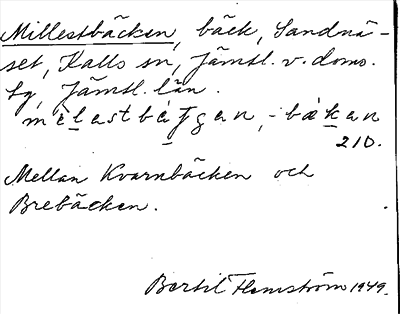 Millestbäcken, bäck, Sandnä-
set, Kalls sn, Jämtl. v. doms.
tg, Jämtl. län.
210.
Mellan Kvarnbäcken och
Brebäcken.
Bertil Flemström 1949.